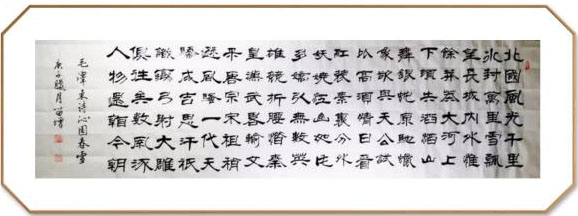 北國風光千里
冰封萬里雪飄
望長城內外惟
餘莽莽大河上
下頓失滔滔山
舞銀蛇原馳蠟
象欲與天公試
比高須晴日看
紅裝素裹分外
妖嬈江山如此
多嬌引無數英
雄競折腰惜秦
皇漢武略輸文
采唐宗宋祖稍
遜風騷一代天
驕成吉思汗祇
識彎弓射大雕
俱往矣數風流
人物還看今朝
毛澤東詩沁園春雪
庚子臘月